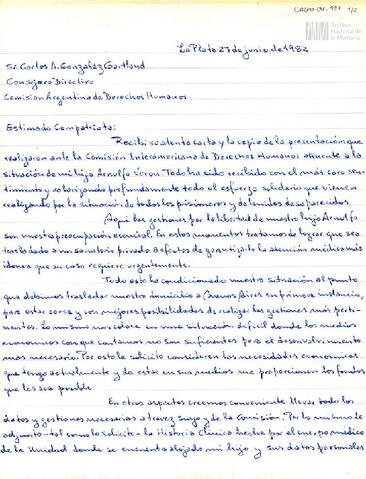 CAGM-04-121 1/2
Archivo
Nacional de
la Memoria
La Plata 27 de junio de 1982
Sr. Carlos A. González Gartland
Consejero Directivo
Comision Argentina de Derechos Humanos
Estimado Compatriota:
Recibí su atenta carta y la copia de la presentación que
realizaron ante la Comisión Interamericana de Derechos Humanos atinente a la
situación de mi hijo Arnulfo Veron. Todo ha sido recibido con el más caro sen-
timiento y valorizando profundamente todo el esfuerzo solidario que vienen
realizando por la situación de todos los prisioneros y detenidos desaparecidos.
Aqui las gestiones por la libertad de nuestro hijo Arnulfo
son nuestra preocupación esencial. En estos momentos tratamos de lograr que sea
trasladado a un sanatorio privado a efectos de garantizarle la atención médica más
idonea que su caso requiere urgentemente.
Todo esto ha condicionado nuestra situación al punto
que debimos trasladar nuestro domicilio a Buenos Aires en primera instancia,
para estar cerca y con mejores posibilidades de realizar las gestiones más perti-
nentes. Lo mismo nos coloca en una situación dificil donde los medios
economicos con que contamos no son suficientes para el desenvolvimiento
mas necesario. Por esto le solicito consideren las necesidades economicas
que tengo actualmente y de estar en sus medios me proporcionen los fondos
que les sea posible.
En otros aspectos creemos conveniente llevar todos los
datos y gestiones necesarias a travez suyo y de la Comisión. Por lo mismo le
adjunto - tal como lo solicitó - la Historia Clínica hecha por el cuerpo médico
de la Unidad donde se encuentra alojado mi hijo y sus datos personales